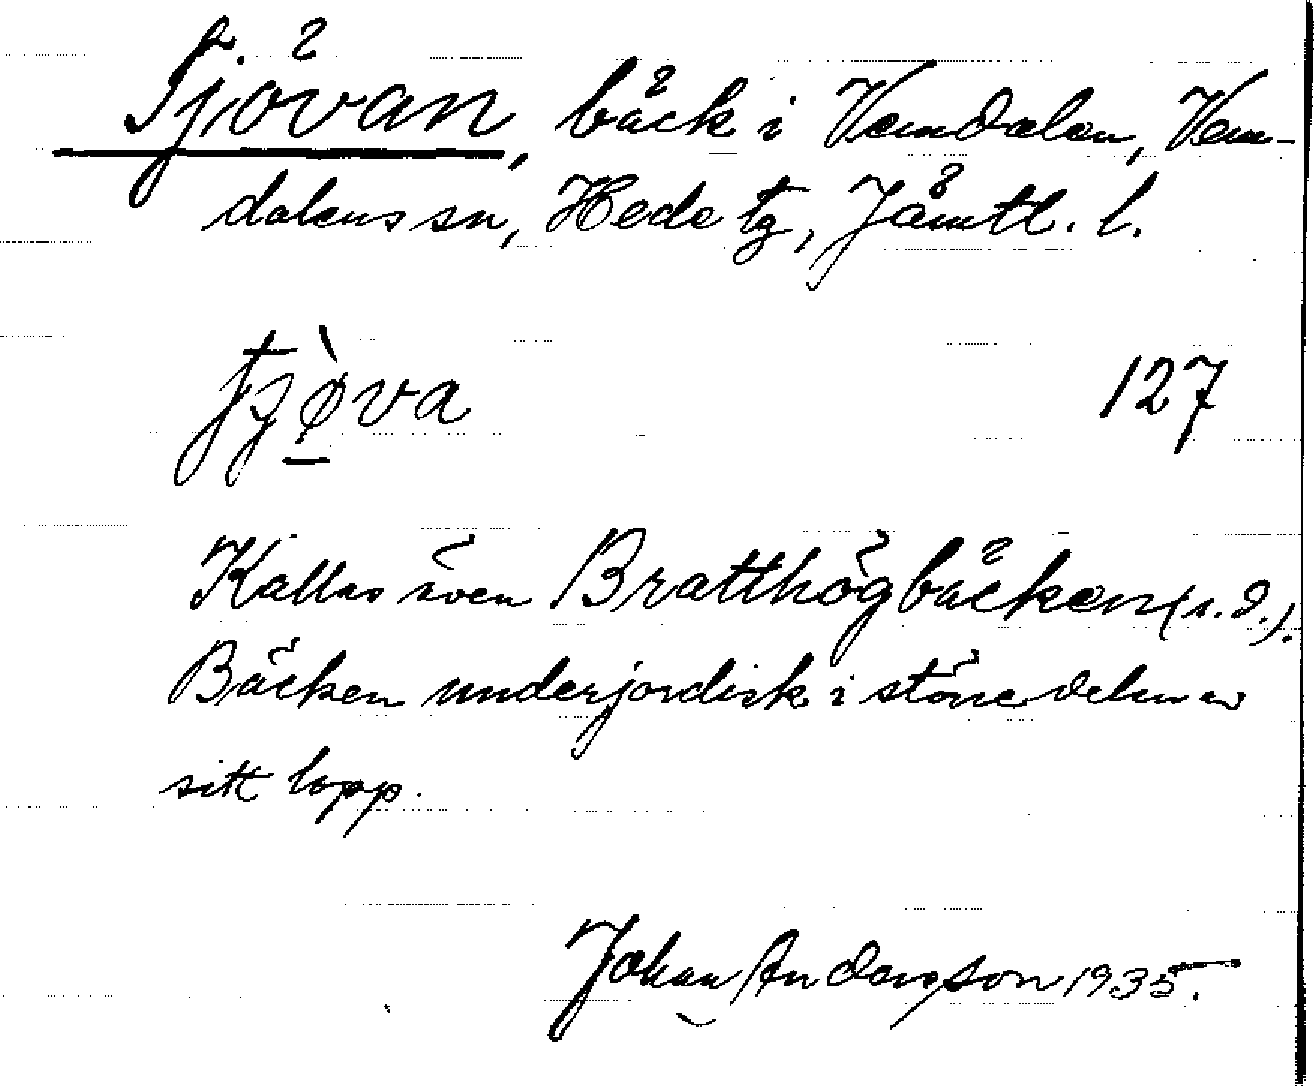 Tjövan, bäck i Vemdalen, Vem-
dalens sn, Hede tg, Jämtl. l.
127
Kallas även Bratthögbäcken (s. d.).
Bäcken underjordisk i större delen av
sitt lopp.
Johan Andersson 1935.